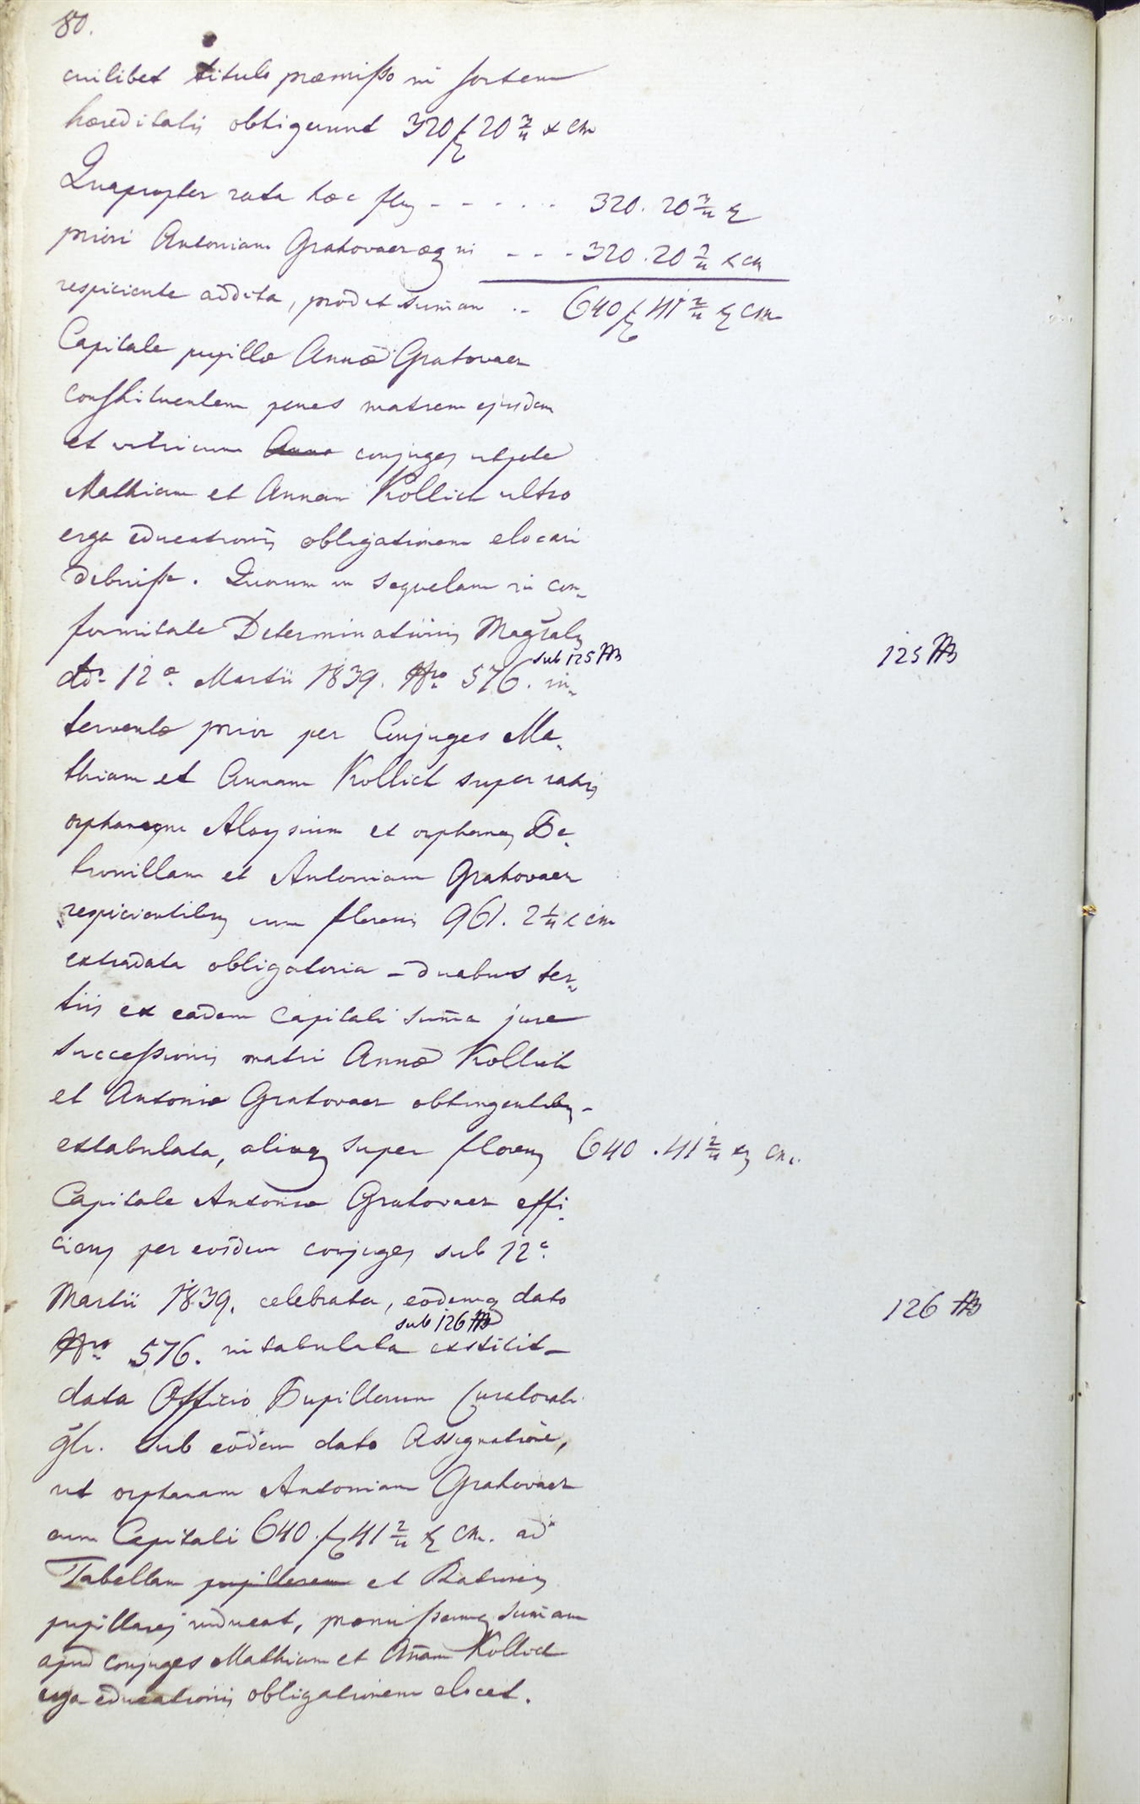 80.
cuilibet titulo præmisso in sortem
hæreditatis obtigerunt 320 f 20 2/4 x CM
Quapropter rata hæc fl. - - - - - 320. 20 2/4 x
priori Antoniam Grahovaczeq in - - - 320. 20 2/4 x CM
respiciente addita, prodit sumam .. 640 f 41 2/4 x CM
Capitale pupillæ Annæ Grahovacz
constituentem penes matrem ejusdem
et vitricum conjuges utpote
Mathiam et Annam Kollich ultro
erga educationis obligationem elocari
debuisse. Quorum in sequelam in con-
formitate Determinationis Magralis
ddo 12a Martii 1839. Nro 576. sub 125 in-
tervente prior per Conjuges Ma-
thiam et Annam Kollich super ratis
orphanum Aloysium et orphanas Pe-
tronillam et Antoniam Grahovacz
respicientibus cum florenis 961. 2 1/4 x CM
extradata obligatoria - duabus ter-
tiis ex eadem Capitali suma jure
successionis matri Annæ Kollich
et Antoniæ Grahovacz obtingentibus -
extabulata, aliaq super florenis 640 . 41 2/4 x CM.
Capitale Antoniæ Grahovacz effi-
ciens per eosdem conjuges sub 12a
Martii 1839. celebrata, eodemq dato
Nro 576. sub 126 intabulata exstitit -
data Officio Pupillorum Curatorali
glr. sub eodem dato Assignatione,
ut orphanam Antoniam Grahovacz
cum Capitali 640 f 41 2/4 x CM. ad
Tabellam pupillarem et Rationes
pupillares inducat, præmissamq sumam
apud conjuges Mathiam et Annam Kollich
erga educationis obligationem elocet.
125
126